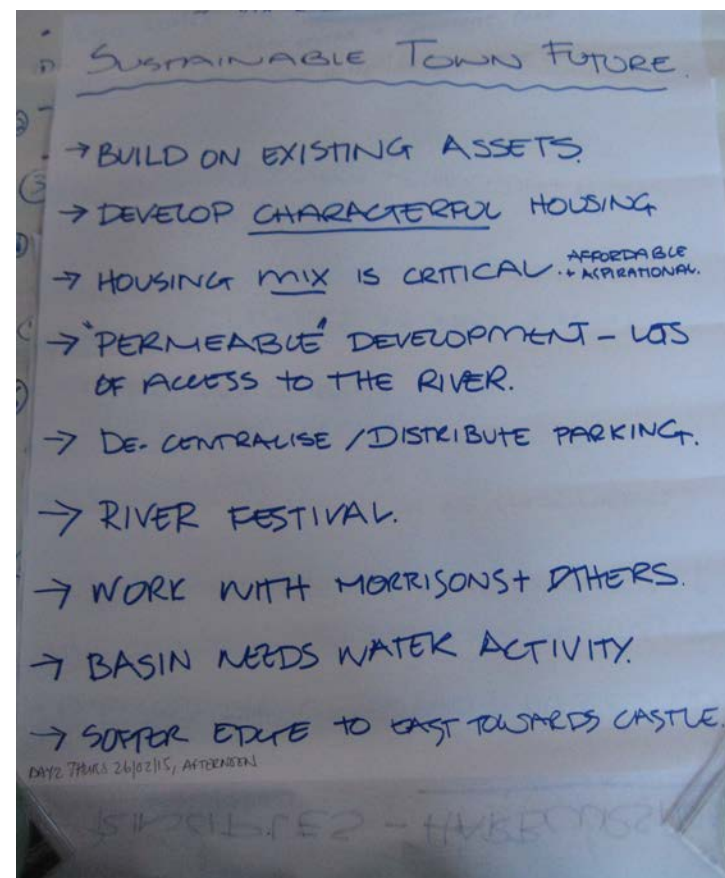 SUSTAINABLE TOWN FUTURE.
→ BUILD ON EXISTING ASSETS.
→ DEVELOP CHARACTERFUL HOUSING
→ HOUSING MIX IS CRITICAL. AFFORDABLE
+ ASPIRATIONAL.
→ "PERMEABLE" DEVELOPMENT - LOTS
OF ACCESS TO THE RIVER.
→ DE-CENTRALISE / DISTRIBUTE PARKING.
→ RIVER FESTIVAL.
→ WORK WITH MORRISONS + OTHERS.
→ BASIN NEEDS WATER ACTIVITY.
→ SOFTER EDGE TO EAST TOWARDS CASTLE.
DAY2 THURS 26/02/15, AFTERNOON